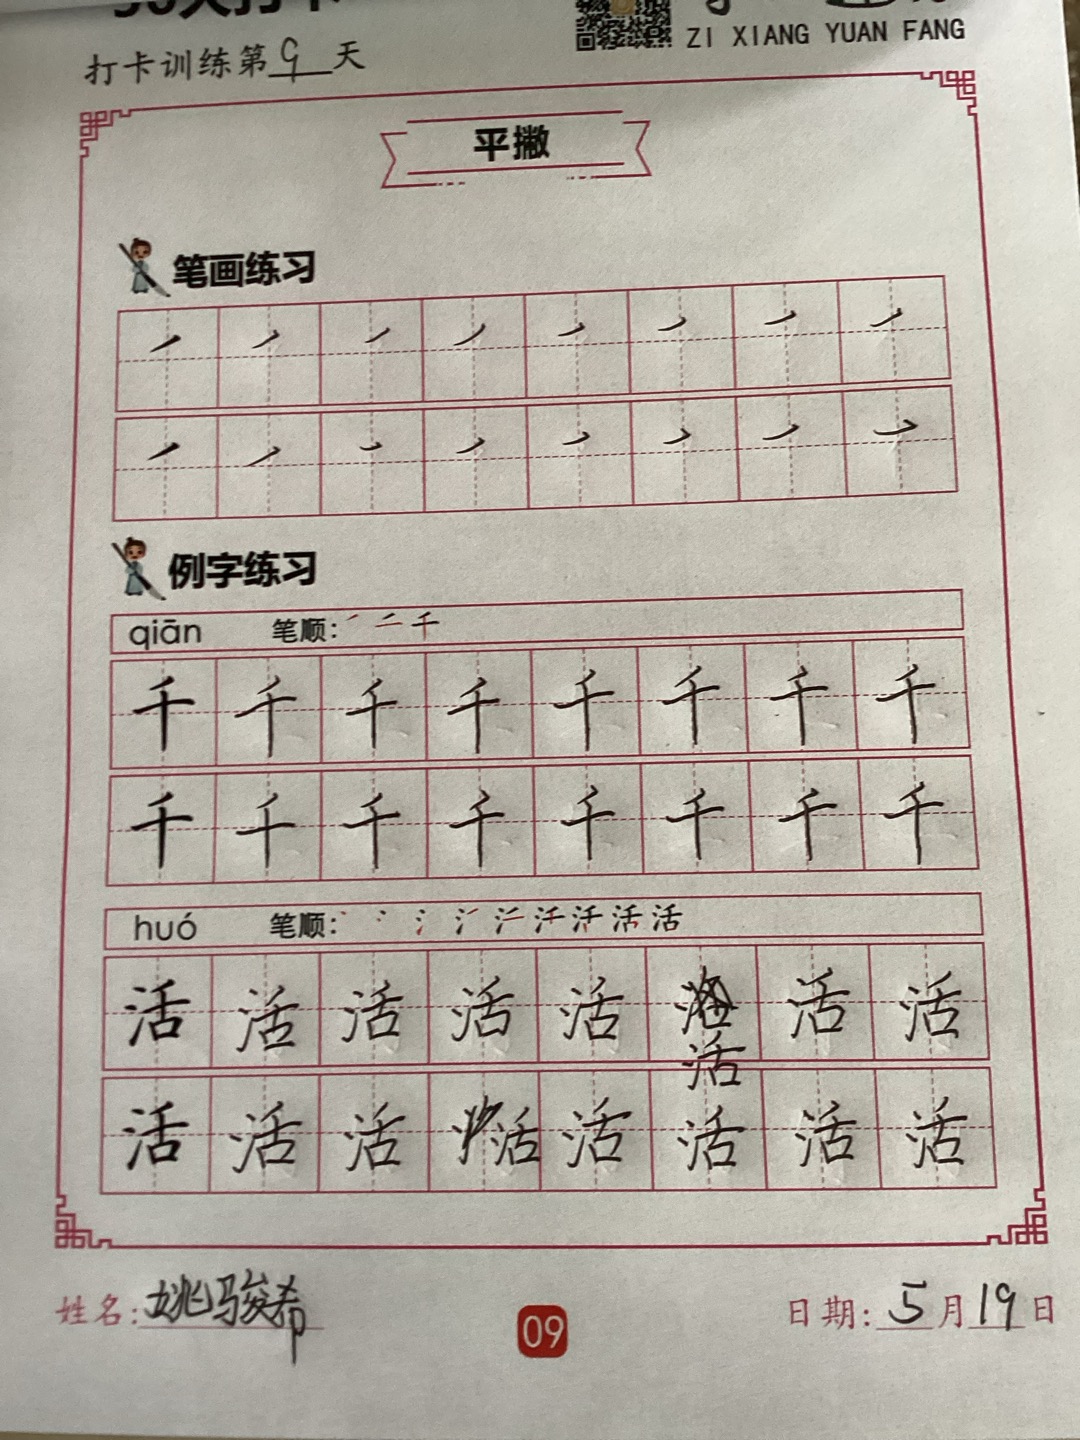 ZI XIANG YUAN FANG
打卡训练第9天
平撇
笔画练习
例字练习
qiān 笔顺: ㇒ 二 千
千 千 千 千 千 千 千 千
千 千 千 千 千 千 千 千
huó 笔顺: 活
活 活 活 活 活 活 活
活
活 活 活 活 活 活 活 活
姓名: 姚骏希
09
日期: 5月19日